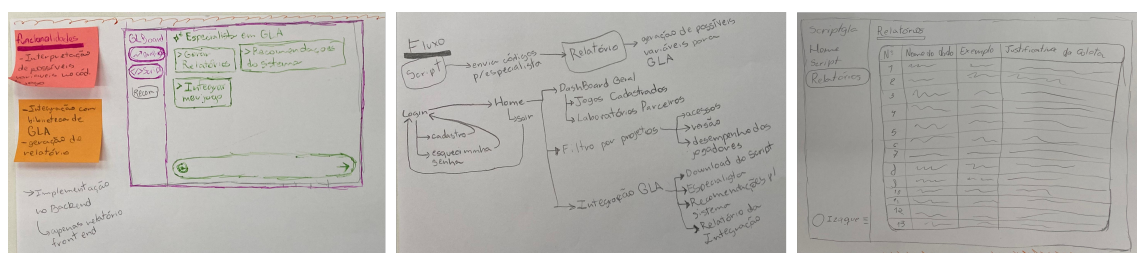 funcionalidades
- Interpretação
de possíveis
variáveis no cód.
- Integração com
biblioteca de
GLA
- geração de
relatório
→ Implementação
no Backend
↳ apenas relatório
front end
GLBoard
Home
Script
Recom
Especialista em GLA
> Gerar
Relatórios
> Recomendações
do sistema
> Integrar
meu jogo
Fluxo
Script
enviar códigos
p/ especialista
Relatório
geração de possíveis
variáveis para
GLA
Login
→ cadastro
→ esqueci minha
senha
Home
→ Sair
DashBoard Geral
→ Jogos Cadastrados
→ Laboratórios Parceiros
→ Filtro por projetos
→ acessos
→ versão
→ desempenho dos
jogadores
→ Integração GLA
→ Download do Script
→ Especialista
→ Recomendações p/
sistema
→ Relatório da
Integração
Home
Script
Relatórios
Relatórios
Nº Nome do dado Exemplo Justificativa da Coleta
1
2
3
4
5
6
7
8
9
10
11
12
13